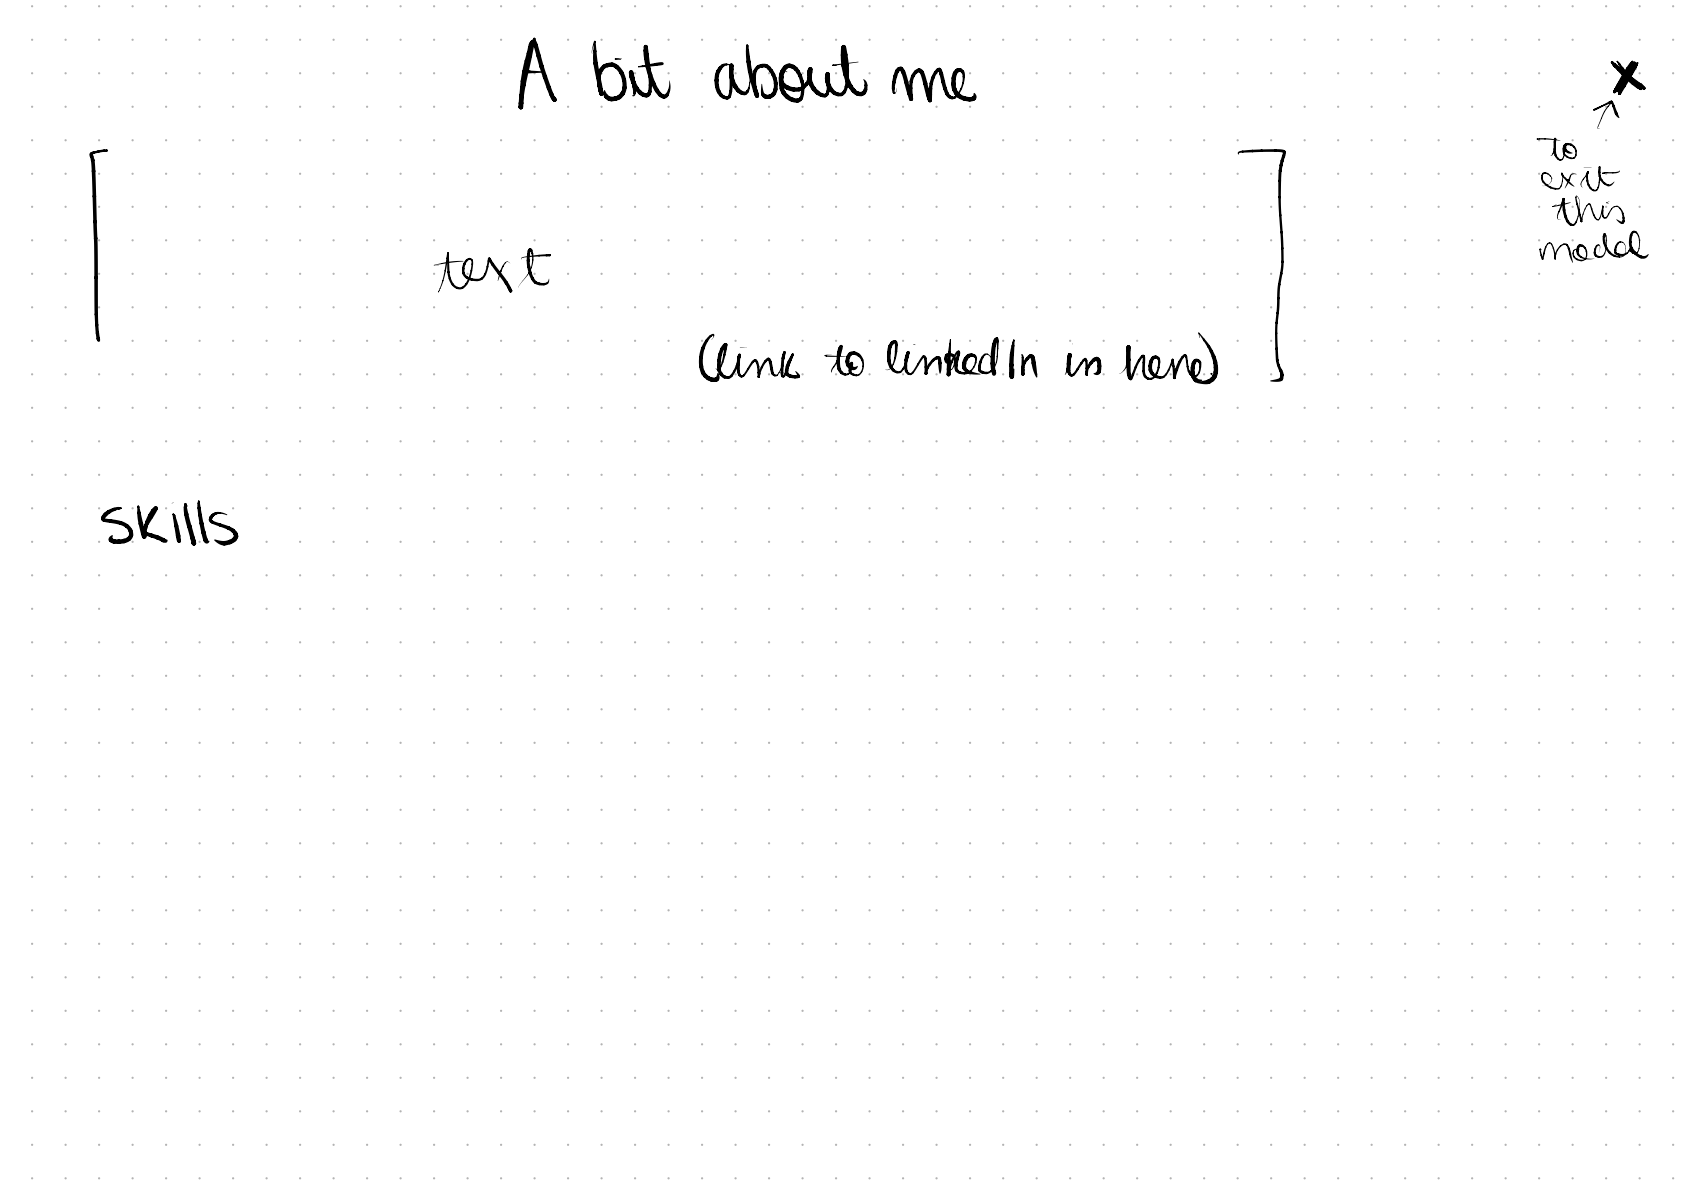 A bit about me
X
to
exit
this
model
text
(link to linkedIn in here)
skills